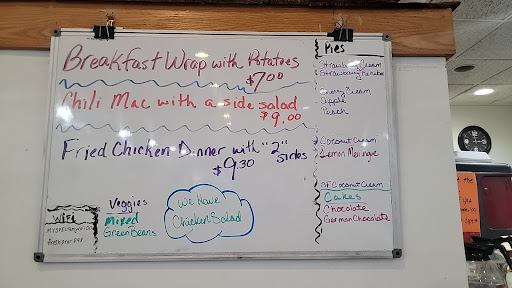 Breakfast Wrap with Potatoes
$7.00
Chili Mac with a side salad
$9.00
Fried Chicken Dinner with "2" sides
$9.30
Veggies
Mixed
Green Beans
We Have
Chicken Salad
WiFi
Pies
Strawberry Cream
Strawberry
Cherry Cream
Apple
Peach
Coconut Cream
Lemon Meringe
SF Coconut Cream
Cakes
Chocolate
German Chocolate